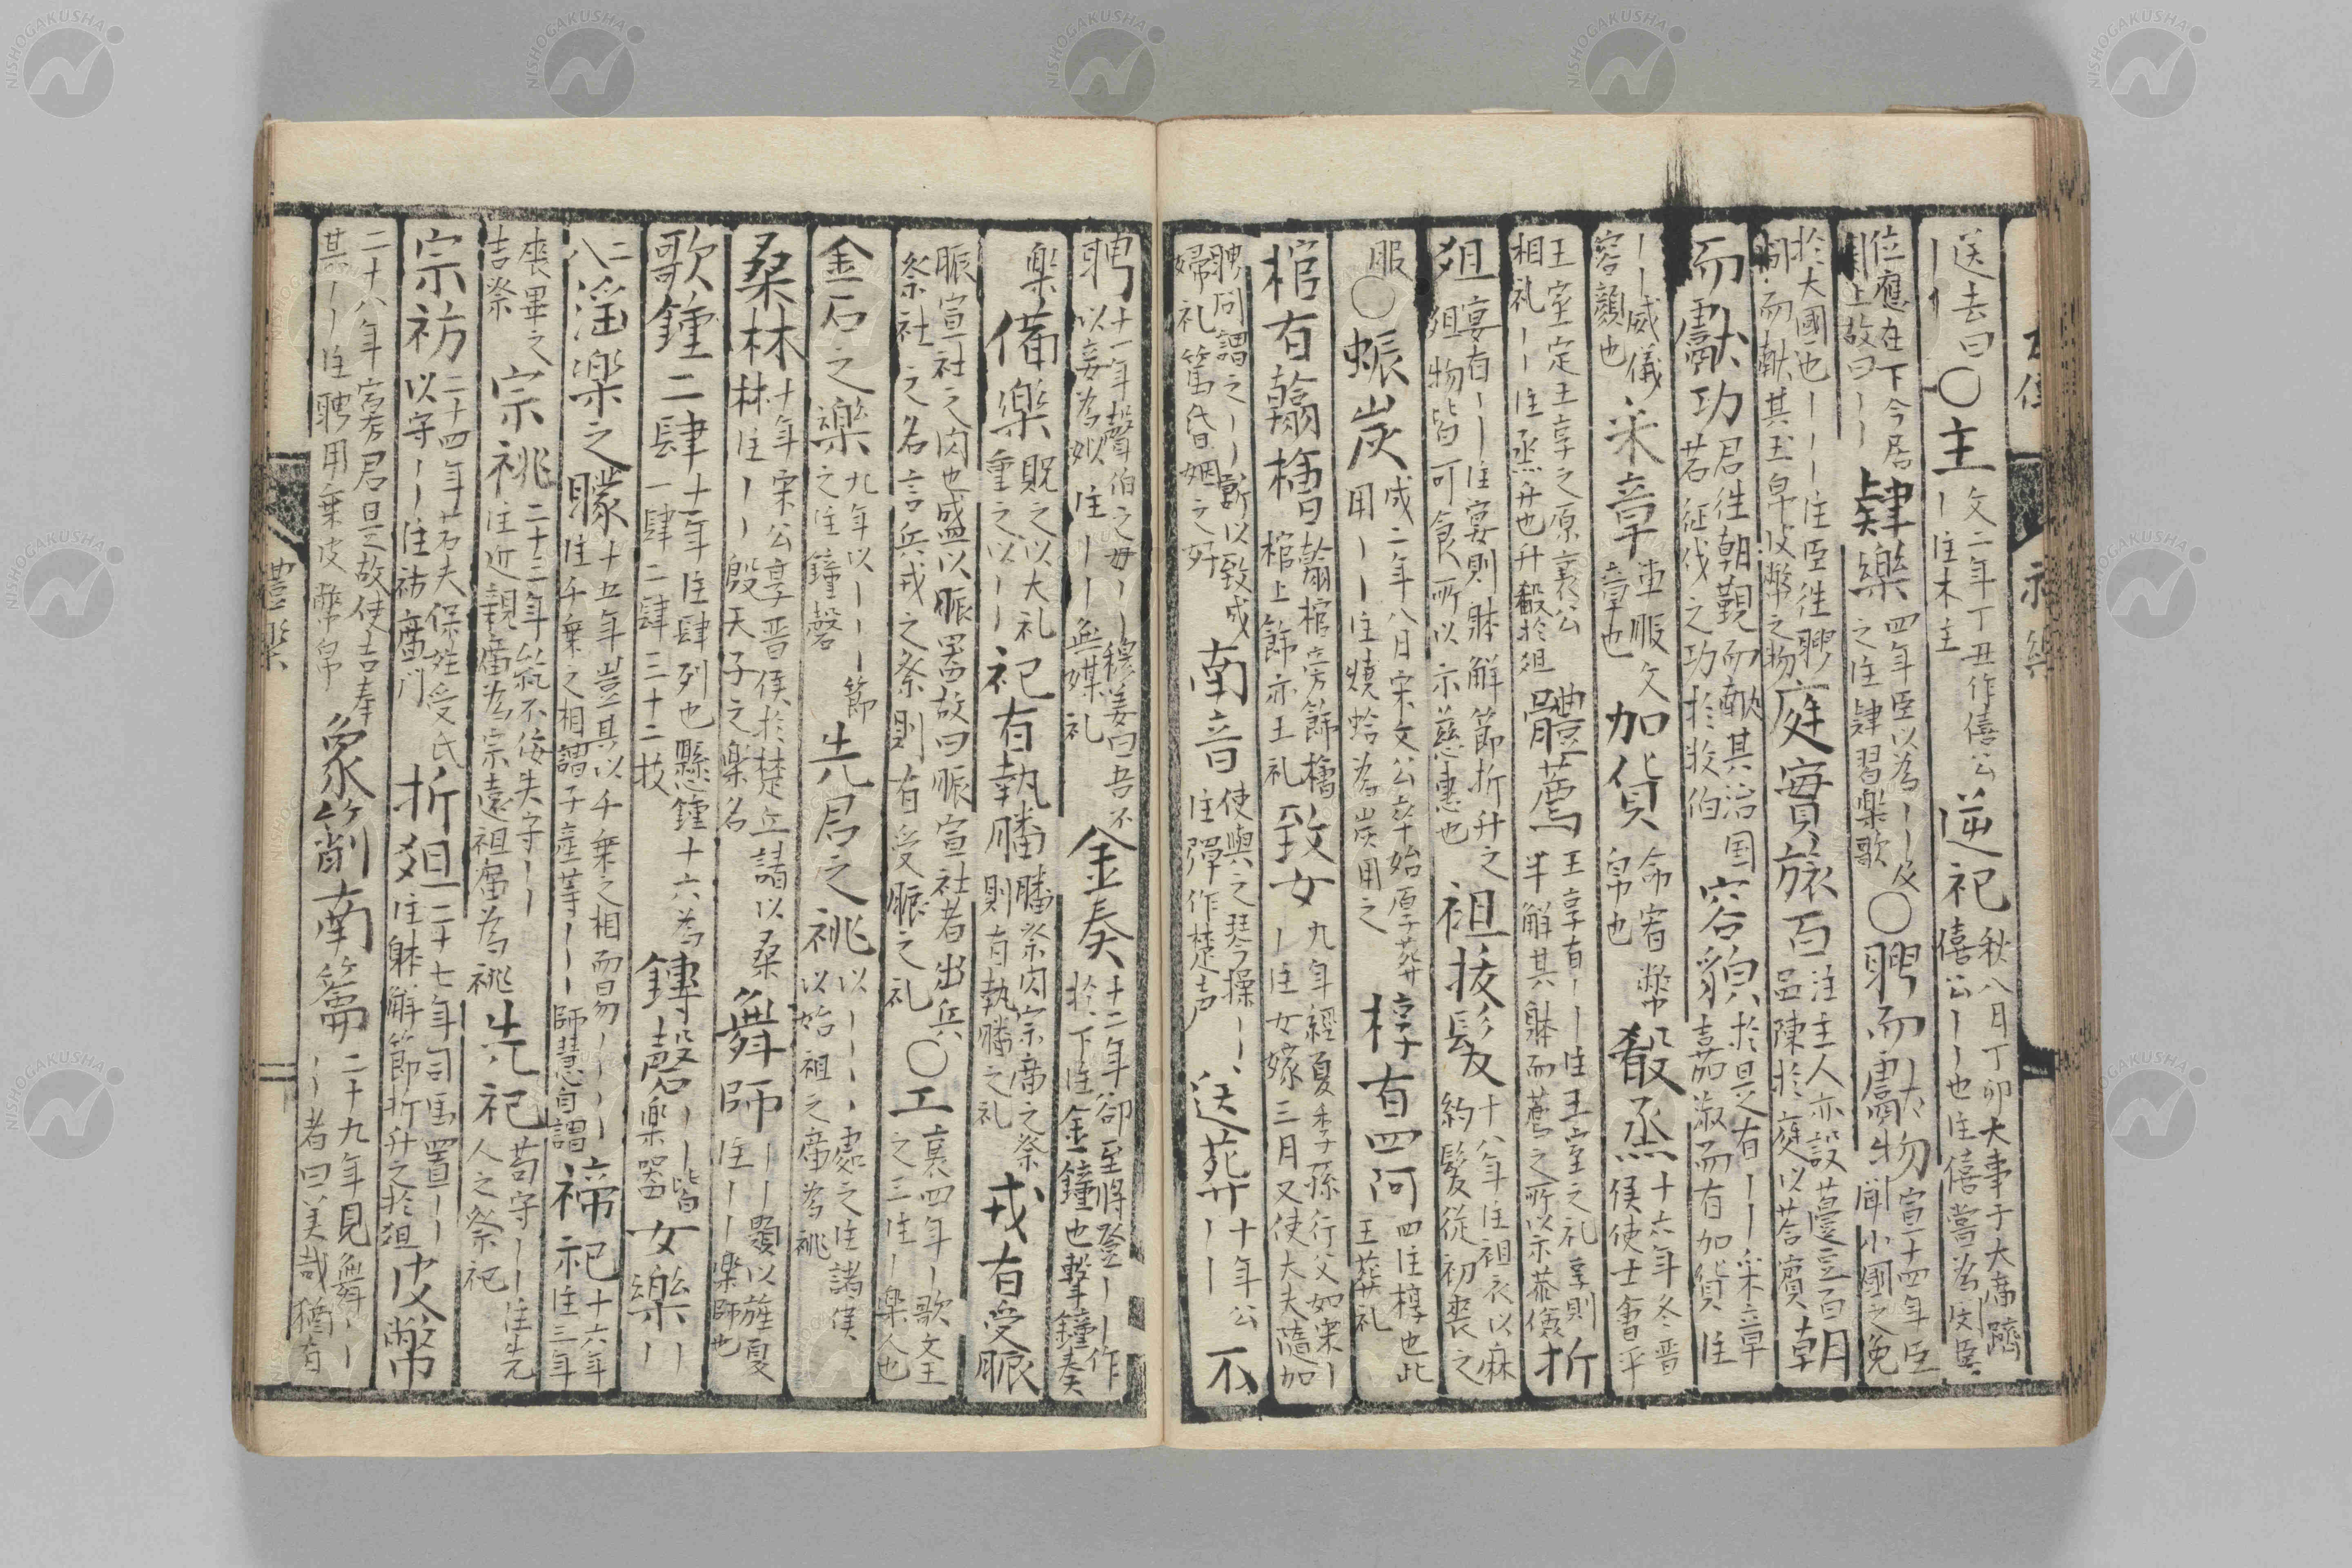 送去曰｜｜○主文二年丁丑作僖公｜注木主逆祀秋八月丁卯大事于大廟躋僖公｜也注僖嘗為閔臣
位應在下今居閔上故曰｜｜肄樂四年臣以為｜｜及之注肄習樂歌○聘而獻物宣十四年臣聞小國之免
於大國也｜｜｜注臣往聘問而献其玉帛皮幣之物庭實旅百注主人亦設籩豆百品陳於庭以荅賓朝
而獻功君往朝覲而献其治国若征伐之功於牧伯容貌於是又有｜｜采章嘉淑而有加貨注
｜｜威儀容顔也采章車服文章也加貨命宥幣帛也殽烝十六年冬晋侯使士會平
王室定王享之原襄公相礼｜｜注烝升也升殽於俎體薦王享有｜｜注王室之礼享則半解其躰而薦之所以示恭儉折
俎宴有｜｜注宴則躰解節折升之俎物皆可食所以示慈惠也袒括髮十八年注袒衣以麻約髮從初喪之
服○蜃炭成二年八月宋文公卒始厚葬用｜｜注燒蛤為炭用之椁有四阿四注椁也此王葬礼
棺有翰檜翰棺旁飾檜棺上飾亦王礼致女九年經夏季孫行父如宋｜｜注女嫁三月又使大夫隨加
聘問謂之｜｜所以致成婦礼篤昏姻之好南音使與之琴操｜｜注彈作楚声送葬十年公｜｜不
聘十一年聲伯之母｜｜穆姜曰吾不以妾為姒注｜｜無媒礼金奏十二年郤至將登｜｜作於下注金鐘也擊鐘奏
楽備樂貺之以大礼重之以｜｜祀有執膰膰祭肉宗廟之祭則有執膰之礼戎有受脤
脤宜社之肉也盛以脤噐故曰脤宜社者出兵祭社之名言兵戎之祭則有受脤之礼○工襄四年｜歌文王之三注｜樂人也
金石之樂九年以｜｜｜節之注鐘磬先君之祧以｜｜｜｜處之注諸侯以始祖之廟為祧
桑林十年宋公享晋侯於楚丘請以桑林注｜｜殷天子之樂名舞師｜｜題以旌夏注｜｜樂師也
歌鍾二肆十一年注肆列也懸鍾十六為一肆二肆三十二枚鏄磬｜｜皆樂器女樂｜｜
二八淫樂之矇十五年豈其以千乗之相而易｜｜｜｜注千乗之相謂子産等｜｜師慧自謂禘祀十六年注三年
喪畢之吉祭宗祧二十三年紇不佞失守｜｜注近親廟為宗遠祖廟為祧先祀苟守｜｜注先人之祭祀
宗祊二十四年若夫保姓受氏以守｜｜注祊廟門折俎二十七年司馬置｜｜注躰解節折升之於俎皮幣
二十八年寡君是故使吉奉其｜｜注聘用乗皮幣帛象箾南籥二十九年見舞｜｜｜｜者曰美哉猶有
禮樂